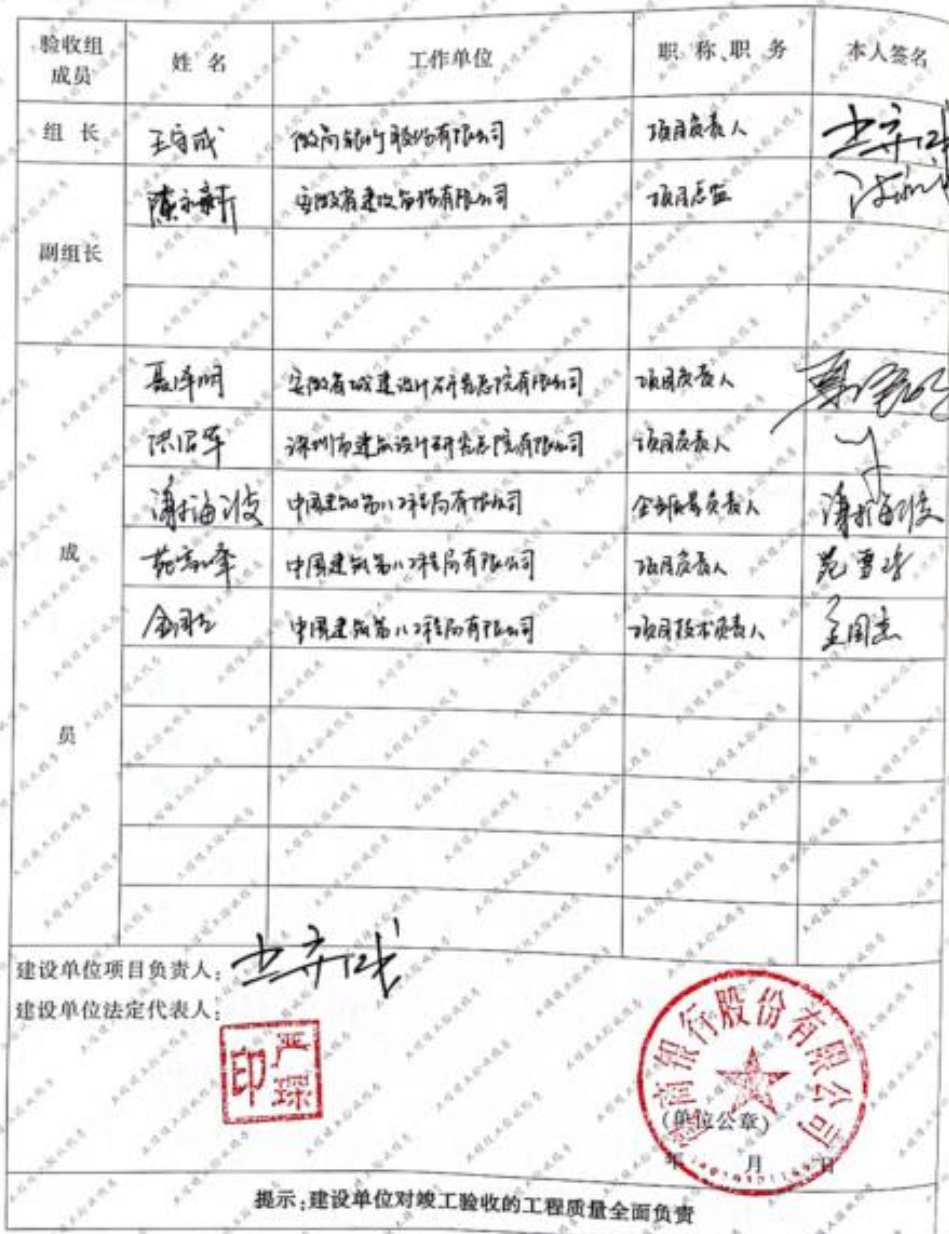 验收组成员 姓 名 工作单位 职 称、职 务 本人签名
组 长 王守成 徽商银行股份有限公司 项目负责人 王守成
副组长 安徽省建设监理有限公司 项目总监
成员
聂泽明 安徽省城建设计研究总院有限公司 项目负责人
洪绍军 深圳市建筑设计研究总院有限公司 项目负责人
谢海波 中国建筑第八工程局有限公司 企业质量负责人 谢海波
苑雪峰 中国建筑第八工程局有限公司 项目负责人 苑雪峰
金国杰 中国建筑第八工程局有限公司 项目技术负责人 金国杰
建设单位项目负责人: 王守成
建设单位法定代表人:
严琛印
徽商银行股份有限公司
(单位公章)
年 月 日
提示:建设单位对竣工验收的工程质量全面负责
工程竣工验收报告